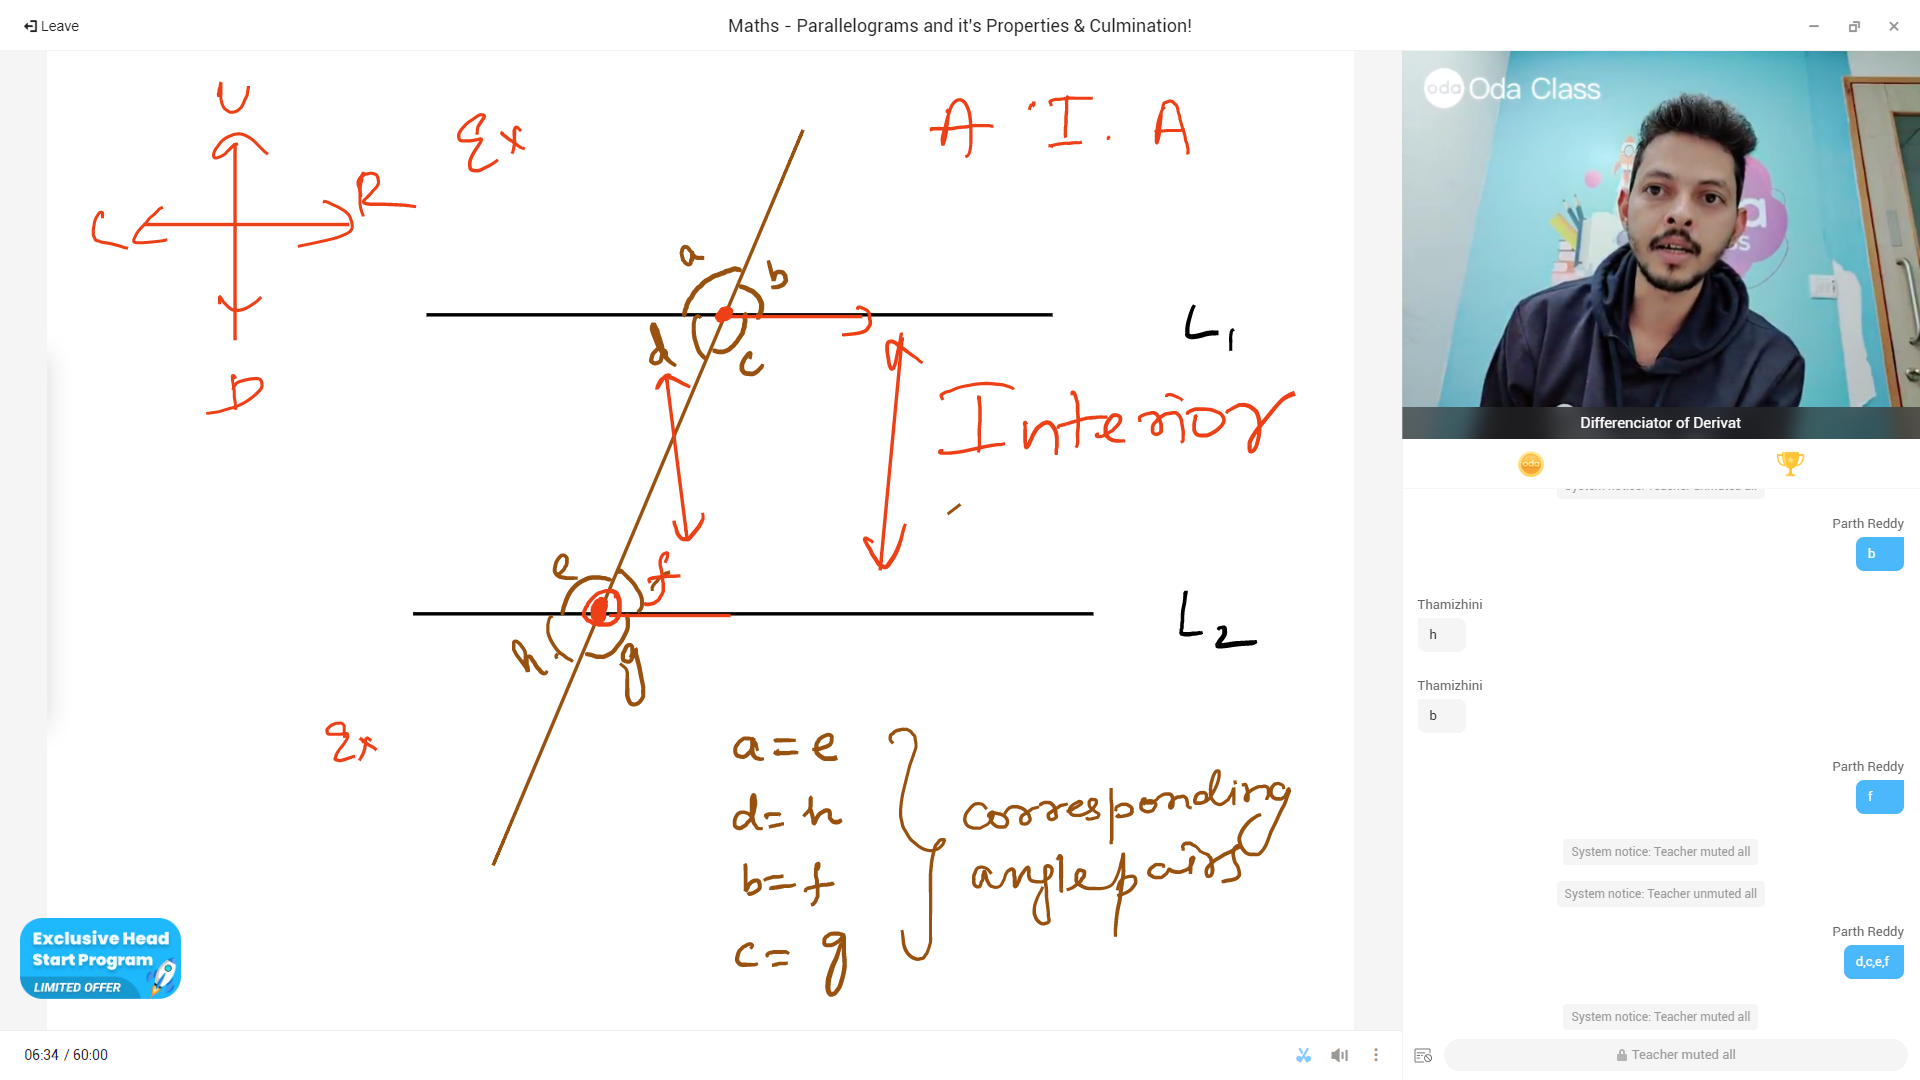 Leave
Maths - Parallelograms and it's Properties & Culmination!
U
L
R
D
Ex
A.I.A
a
b
d
c
L1
Interior
e
f
h
g
L2
Ex
a = e
d = h
b = f
c = g
corresponding
angle pairs
Exclusive Head
Start Program
LIMITED OFFER
06:34 / 60:00
oda Oda Class
Differenciator of Derivat
oda
System notice: Teacher unmuted all
Parth Reddy
b
Thamizhini
h
Thamizhini
b
Parth Reddy
f
System notice: Teacher muted all
System notice: Teacher unmuted all
Parth Reddy
d,c,e,f
System notice: Teacher muted all
Teacher muted all